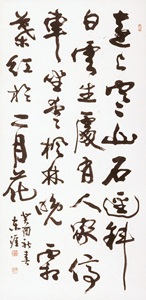 遠上寒山石逕斜
白雲生處有人家停
車坐愛楓林晚霜
葉紅於二月花
癸酉